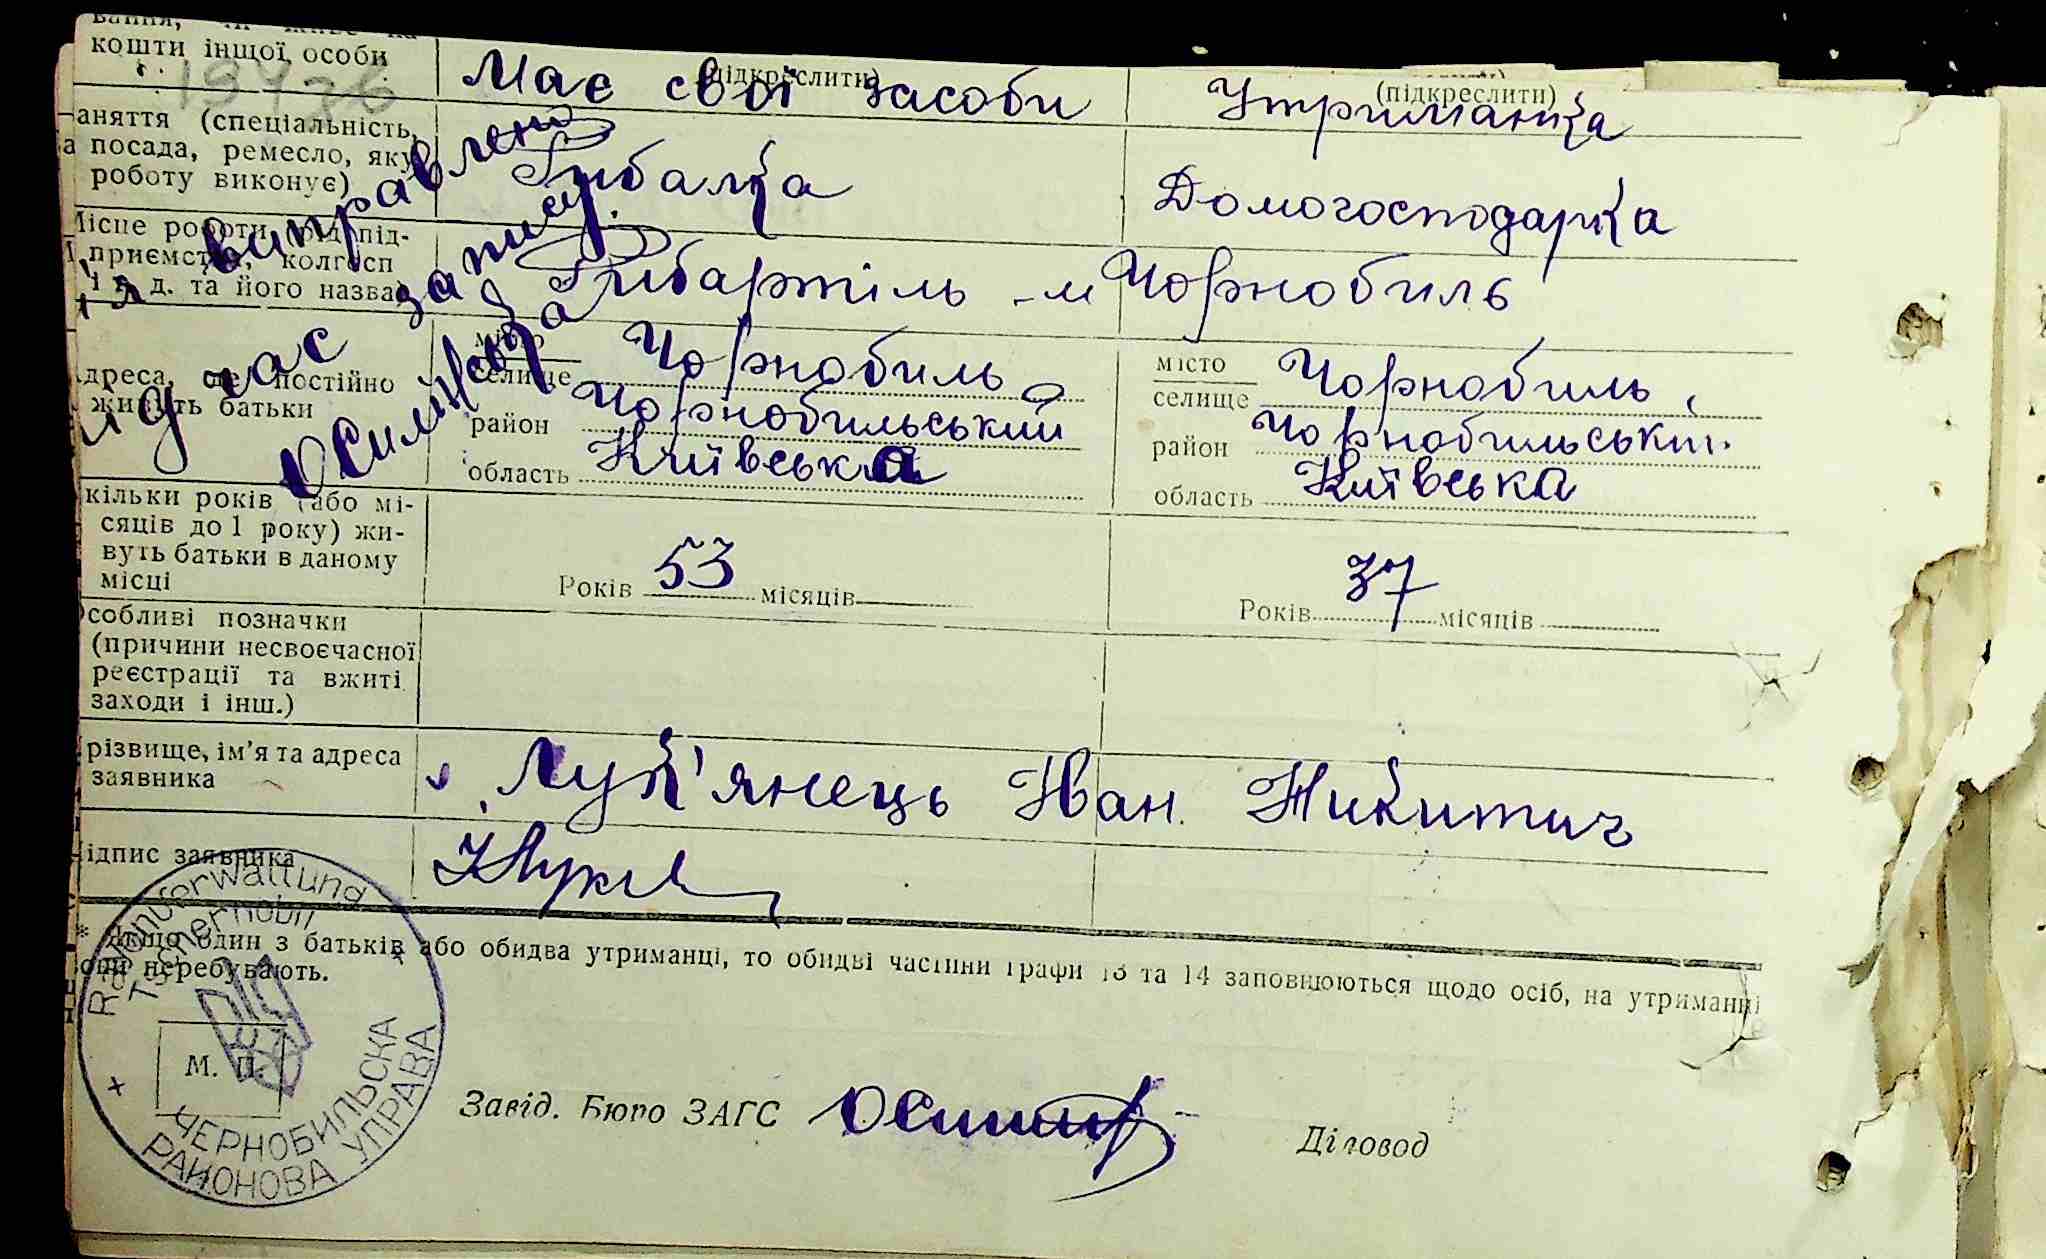 кошти іншої особи
(підкреслити)
(підкреслити)
Має свої засоби
Утриманка
19476
аняття (спеціальність,
а посада, ремесло, яку
роботу виконує)
Рибалка
Домогосподарка
Місце роботи (рід під-
приємства, колгосп
і т. д. та його назва)
Рибартіль - м Чорнобиль
виправлено
під час запису
дреса, де постійно
живуть батьки
місто
селище
Чорнобиль
район Чорнобильський
область Київська
місто
селище
Чорнобиль,
район Чорнобильський
область Київська
кільки років (або мі-
сяців до 1 року) жи-
вуть батьки в даному
місці
Років 53 місяців
Років 37 місяців
Особливі позначки
(причини несвоєчасної
реєстрації та вжиті
заходи і інш.)
різвище, ім'я та адреса
заявника
Лук'янець Іван Никитич
ідпис заявника
* Якщо один з батьків або обидва утриманці, то обидві частини графи 13 та 14 заповнюються щодо осіб, на утриманні
вони перебувають.
Rayonverwaltung
Tschernobil
ЧЕРНОБИЛЬСКА
РАЙОНОВА УПРАВА
М. П.
Завід. Бюро ЗАГС
Діловод